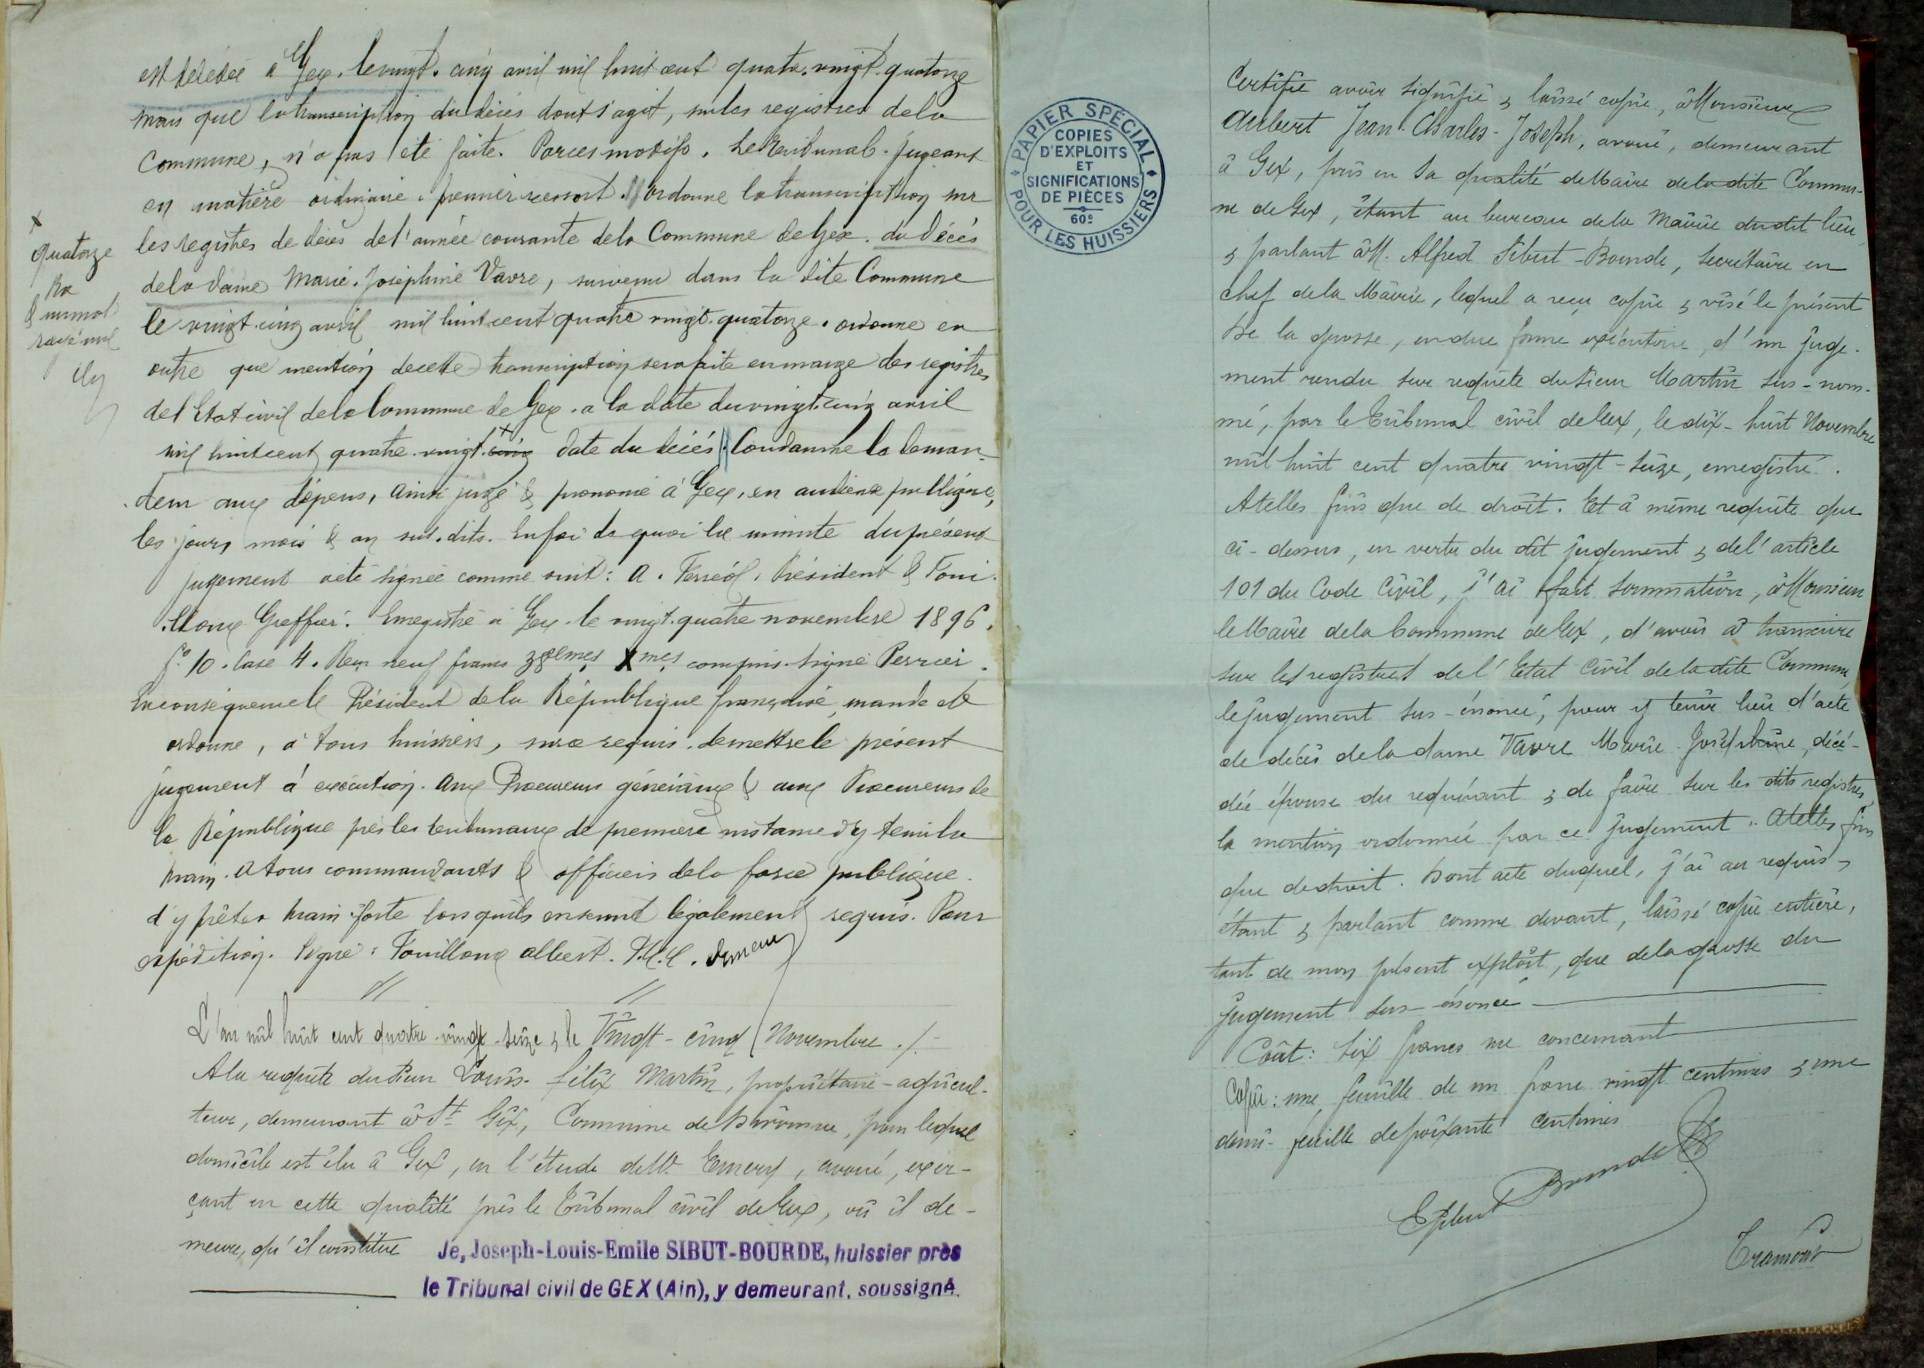 est décédée à Gex, le vingt-cinq avril mil huit cent quatre-vingt-quatorze
mais que la transcription du décès dont s'agit, sur les registres de la
Commune, n'a pas été faite. Par ces motifs. Le Tribunal. Jugeant
en matière ordinaire & premier ressort. Ordonne la transcription sur
les registres de décès de l'année courante de la Commune de Gex. du décès
de la dame Marie-Joséphine Vavre, survenu dans la dite Commune
le vingt-cinq avril mil huit cent quatre vingt-quatorze. ordonne en
outre que mention de cette transcription sera faite en marge des registres
de l'Etat civil de la Commune de Gex. à la date du vingt-cinq avril
mil huit cent quatre-vingt-cinq date du décès. Condamne le deman-
deur aux dépens, ainsi jugé & prononcé à Gex, en audience publique,
les jours, mois & an sus-dits. En foi de quoi la minute du présent
jugement a été signée comme suit: A. Ferréol, Président & Foui-
lloux Greffier. Enregistré à Gex le vingt-quatre novembre 1896,
f° 10. case 4. Reçu neuf francs compris. signé Perrier.
En conséquence le Président de la République française, mande et
ordonne, à tous huissiers, sur ce requis, de mettre le présent
jugement à exécution. aux Procureurs généraux & aux Procureurs de
la République près les tribunaux de première instance d'y tenir la
main. A tous commandants & officiers de la force publique.
d'y prêter main-forte lorsqu'ils en seront légalement requis. Pour
expédition. Signé: Fouilloux albert. P.C.C. Emery
x
quatorze
mot
rayé nul
L'an mil huit cent quatre-vingt-seize & le Vingt-cinq Novembre ./.
A la requête du sieur Louis-Félix Martin, propriétaire-agricul-
teur, demeurant à St Gix, Commune de Divonne, pour lequel
domicile est élu à Gex, en l'étude de Me Emery, avoué, exer-
çant en cette qualité près le Tribunal civil de Gex, où il de-
meure, qu'il constitue
Je, Joseph-Louis-Emile SIBUT-BOURDE, huissier près
le Tribunal civil de GEX (Ain), y demeurant, soussigné.
PAPIER SPÉCIAL
COPIES
D'EXPLOITS
ET
SIGNIFICATIONS
DE PIÈCES
60c
POUR LES HUISSIERS
Certifie avoir signifié & laissé copie, à Monsieur
Aubert Jean-Charles-Joseph, avoué, demeurant
à Gex, pris en sa qualité de Maire de la dite Commu-
ne de Gex, étant au bureau de la Mairie du dit lieu,
& parlant à M. Alfred Sibut-Bourde, Secrétaire en
chef de la Mairie, lequel a reçu copie & visé le présent
De la grosse, en due forme exécutoire, d'un juge-
ment rendu sur requête du sieur Martin sus-nom-
mé, par le Tribunal civil de Gex, le dix-huit Novembre
mil huit cent quatre vingt-seize, enregistré.
A telles fins que de droit. Et à même requête que
ci-dessus, en vertu du dit jugement & de l'article
101 du Code Civil, j'ai fait sommation, à Monsieur
le Maire de la Commune de Gex, d'avoir à transcrire
sur les registres de l'Etat Civil de la dite Commune,
le jugement sus-énoncé, pour y tenir lieu d'acte
de décès de la dame Vavre Marie-Joséphine, décé-
dée épouse du requérant & de faire sur les dits registres,
la mention ordonnée par ce jugement. A telles fins
que de droit. Dont acte duquel, j'ai au requis,
étant & parlant comme devant, laissé copie entière,
tant de mon présent exploit, que de la grosse du
jugement sus-énoncé
Coût: Six francs me concernant
Copie: une feuille de un franc vingt centimes & une
demi-feuille de soixante centimes